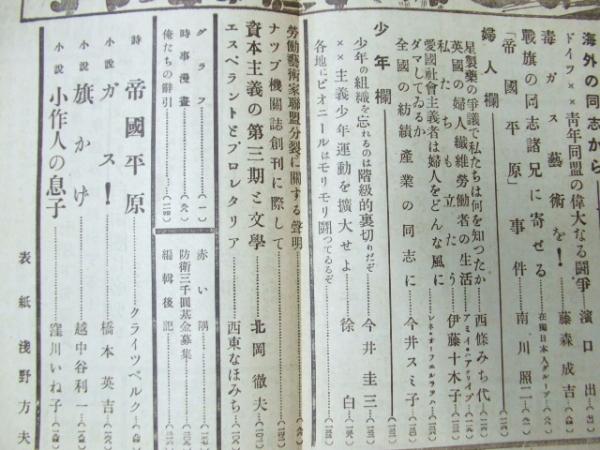 海外の同志から
ドイツ××青年同盟の偉大なる闘爭……濱口出
毒ガス藝術を！……藤森成吉
戰旗の同志諸兄に寄せる……在獨日本人グループ
「帝國平原」事件……南川照二
婦人欄
星製藥の爭議で私たちは何を知つたか……西條みち代
英國の婦人纖維勞働者の生活
私たちも立たう……伊藤十木子
愛國社會主義者は婦人をどんな風に
ダマしてゐるか
全國の紡績產業の同志に……今井スミ子
少年欄
少年の組織を忘れるのは階級的裏切りだぞ……今井圭三
××主義少年運動を擴大せよ……徐白
各地にピオニールはモリモリ鬪つてゐるぞ
勞働藝術家聯盟分裂に關する聲明
ナツプ機關誌創刊に際して
資本主義の第三期と文學……北岡徹夫
エスペラントとプロレタリア……西東なほみち
グラフ……(一)
時事漫畫……(九)
俺たちの辭引
赤い隅
防衞三千圓基金募集
編輯後記
詩 帝國平原……クライツベルク
小說 ガス！……橋本英吉
小說 旗かけ……越中谷利一
小說 小作人の息子……窪川いね子
表紙 淺野方夫